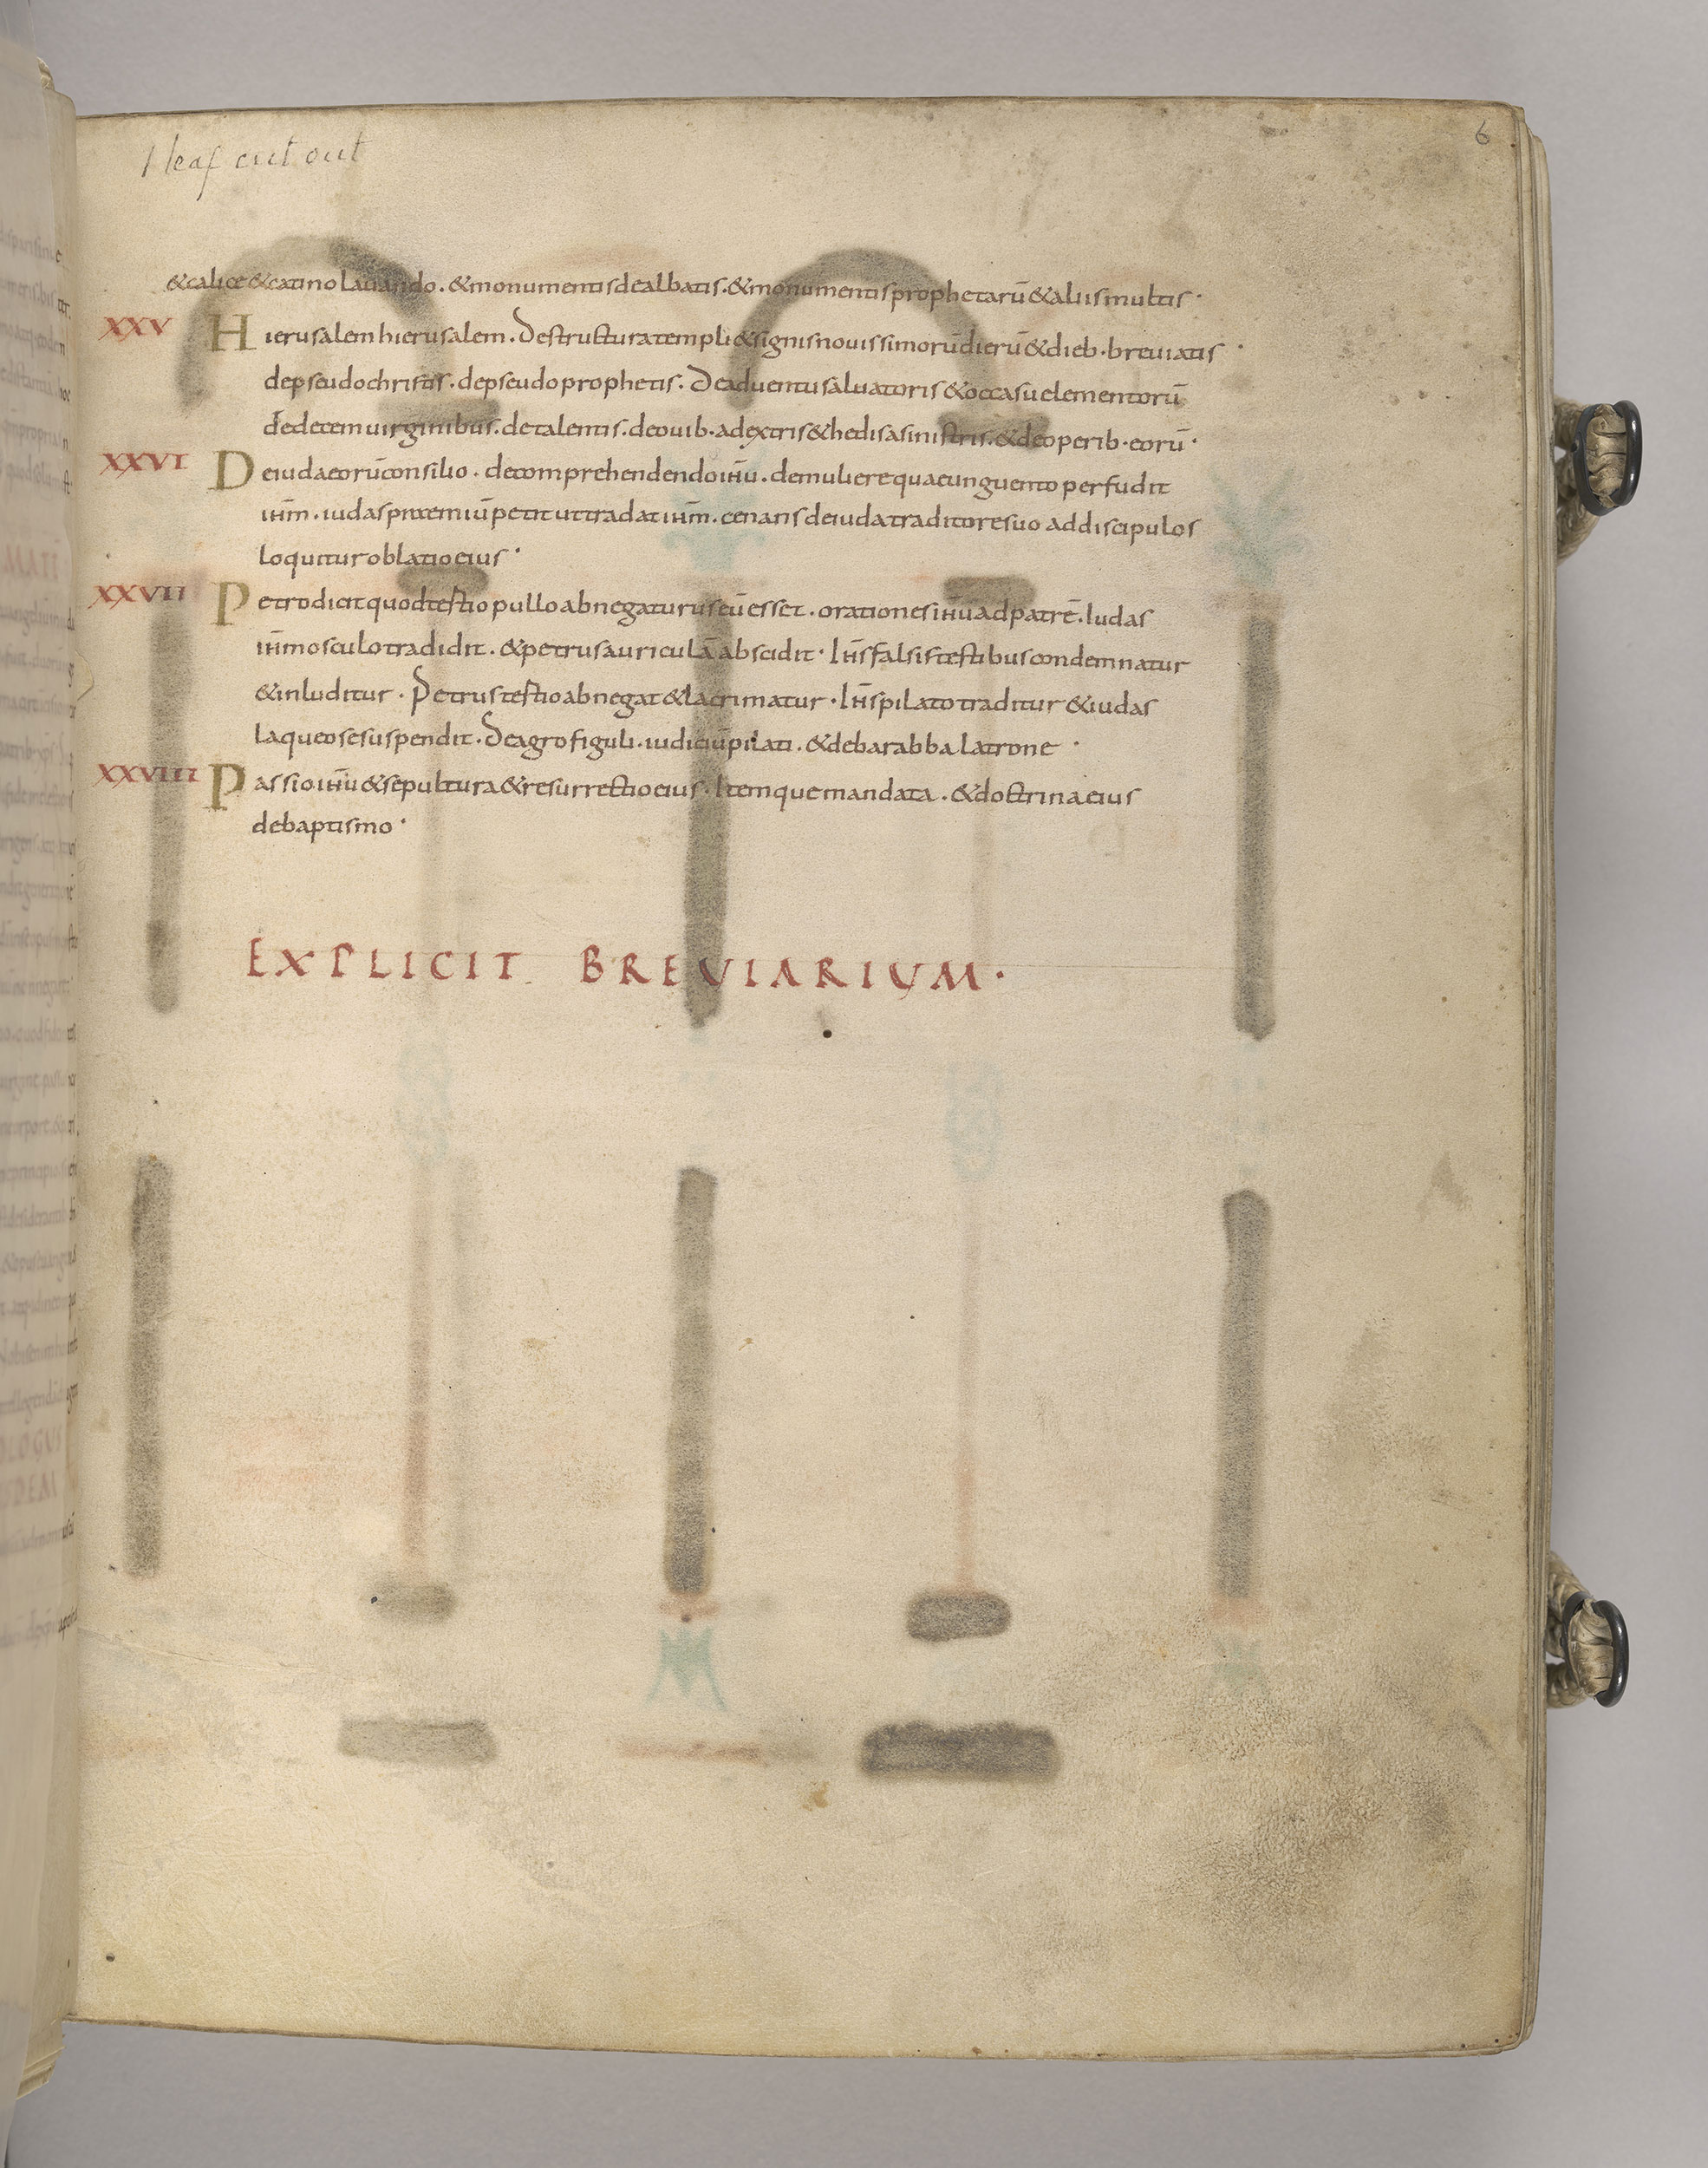 1 leaf cut out
6
& calice & catino lauando . & monumentis dealbatis . & monumentis prophetarū & aliis multis ·
XXV Hierusalem hierusalem . Destructura templi & signis nouissimorū dierū & dieb · breuiatis ·
de pseudo christis . de pseudo prophetis . De aduentu saluatoris & occasu elementorū
de decem uirginibus . de talentis . de ouib · ad extris & hedis asinistris . & de operib · eorū ·
XXVI De iudaeorū consilio . de comprehendendo ih̄u . de muliere quae unguento perfudit
ih̄m . iudas praemiū petit ut tradat ih̄m . cenans de iuda traditore suo ad discipulos
loquitur oblatio eius ·
XXVII Petro dicit quod tertio pullo abnegaturus eū esset . orationes ih̄u ad patrē . Iudas
ih̄m osculo tradidit . & petrus auriculā abscidit · Ih̄s falsis testibus condemnatur
& inluditur · Petrus tertio abnegat & lacrimatur · Ih̄s pilato traditur & iudas
laqueo se suspendit . De agro figuli . iudiciū pilati . & de barabba latrone ·
XXVIII Passio ih̄u & sepultura & resurrectio eius · Itemque mandata . & doctrina eius
de baptismo ·
EXPLICIT BREUIARIUM ·